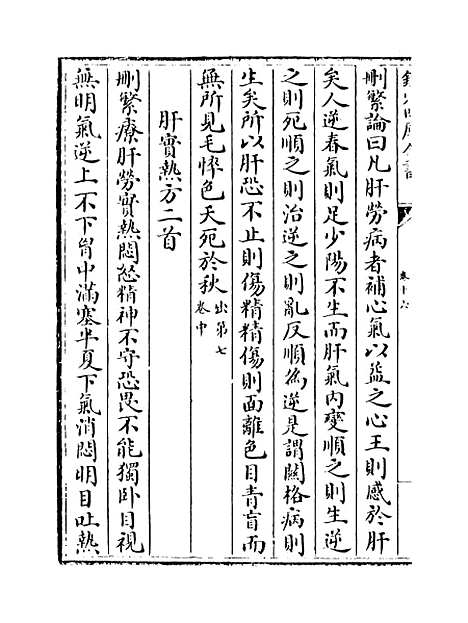 欽定四庫全書
卷十六
刪繁論曰凡肝勞病者補心氣以益之心王則感於肝
矣人逆春氣則足少陽不生而肝氣内變順之則生逆
之則死順之則治逆之則亂反順為逆是謂關格病則
生矣所以肝恐不止則傷精精傷則面離色目青盲而
無所見毛悴色夭死於秋出第七卷中
肝實熱方二首
刪繁療肝勞實熱悶怒精神不守恐畏不能獨卧目視
無明氣逆上不下胷中滿塞半夏下氣消悶明目吐熱